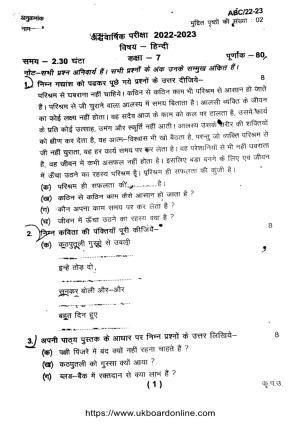 अनुक्रमांक
ABC/22-23
नाम
मुद्रित पृष्ठों की संख्या : 02
अर्द्धवार्षिक परीक्षा 2022-2023
विषय – हिन्दी
कक्षा – 7
समय – 2.30 घंटा
पूर्णांक – 80
नोट–सभी प्रश्न अनिवार्य हैं। सभी प्रश्नों के अंक उनके सम्मुख अंकित हैं।
1 निम्न गद्यांश को पढकर पूछे गये प्रश्नों के उत्तर दीजिये– 8
परिश्रम से घबराना नहीं चाहिये। कठिन से कठिन काम भी परिश्रम से आसान हो जाते
हैं। परिश्रम से जी चुराने वाला आलस्य में समय बिताता है। आलसी व्यक्ति के जीवन
का कोई लक्ष्य नहीं होता। वह सदैव आज के काम को कल पर टालता है, उसमें कार्य
के प्रति कोई उत्साह, उमंग और स्फूर्ति नहीं आती। आलस्य उसके शरीर की शक्तियों
को क्षीण कर देता है, वह आत्म–विश्वास भी खो बैठता है, परन्तु जो व्यक्ति परिश्रम से
जी नहीं चुराता, वह हर कार्य समय पर कर लेता है। वह परेशानियों से भी नहीं घबराता
है, वह जीवन में कभी असफल नहीं होता है। इसलिए बडा बनने के लिए एवं जीवन
में ऊँचा उठने का रहस्य परिश्रम है। परिश्रम ही सफलता की कुंजी है।
(क) परिश्रम ही सफलता की ........ है।
(ख) कठिन से कठिन काम कैसे आसान हो जाता है ?
(ग) कौन अपना काम समय पर कर लेता है ?
(घ) जीवन में ऊँचा उठने का रहस्य क्या है ?
2 निम्न कविता की पंक्तियाँ पूरी कीजिये– 8
(क) कठपुतली गुस्से से उबली
इन्हें तोड़ दो,
सुनकर बोली और–और
बहुत दिन हुए
3. अपनी पाठ्य पुस्तक के आधार पर निम्न प्रश्नों के उत्तर लिखिये– 8
(क) पक्षी पिंजरे में बंद क्यों नहीं रहना चाहते हैं ?
(ख) कठपुतली को गुस्सा क्यों आया ?
(ग) ब्लड–बैंक में रक्तदान से क्या लाभ हैं ?
(1)
कृ.प.उ.
https://www.ukboardonline.com